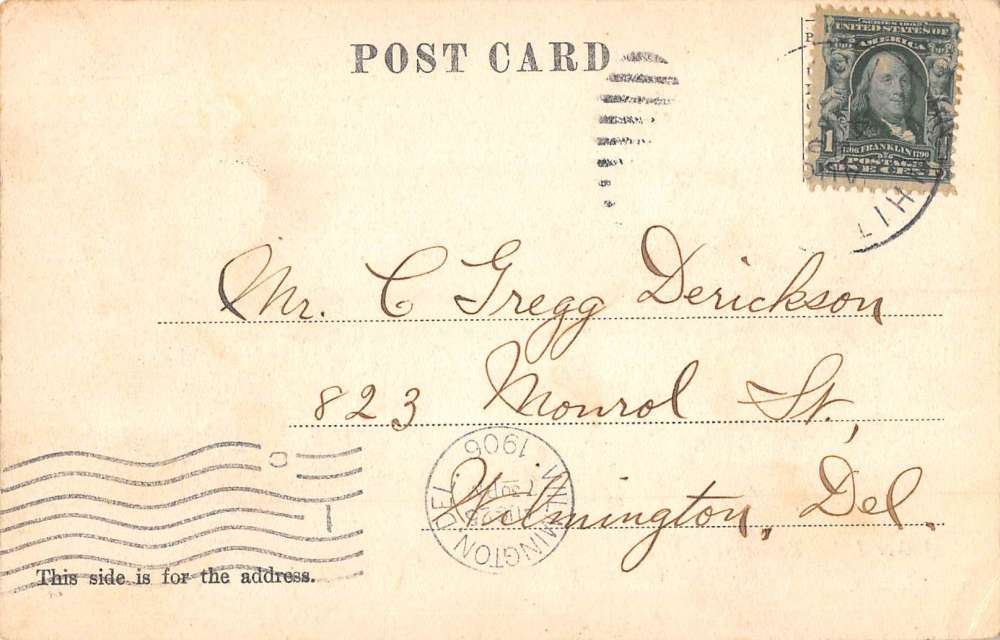 POST CARD
SERIES 1902
UNITED STATES OF
AMERICA
1
1706 FRANKLIN 1790
POSTAGE
Mr. C Gregg Derickson
823 Monrol St.,
Wilmington, Del.
WILMINGTON DEL.
1906
This side is for the address.